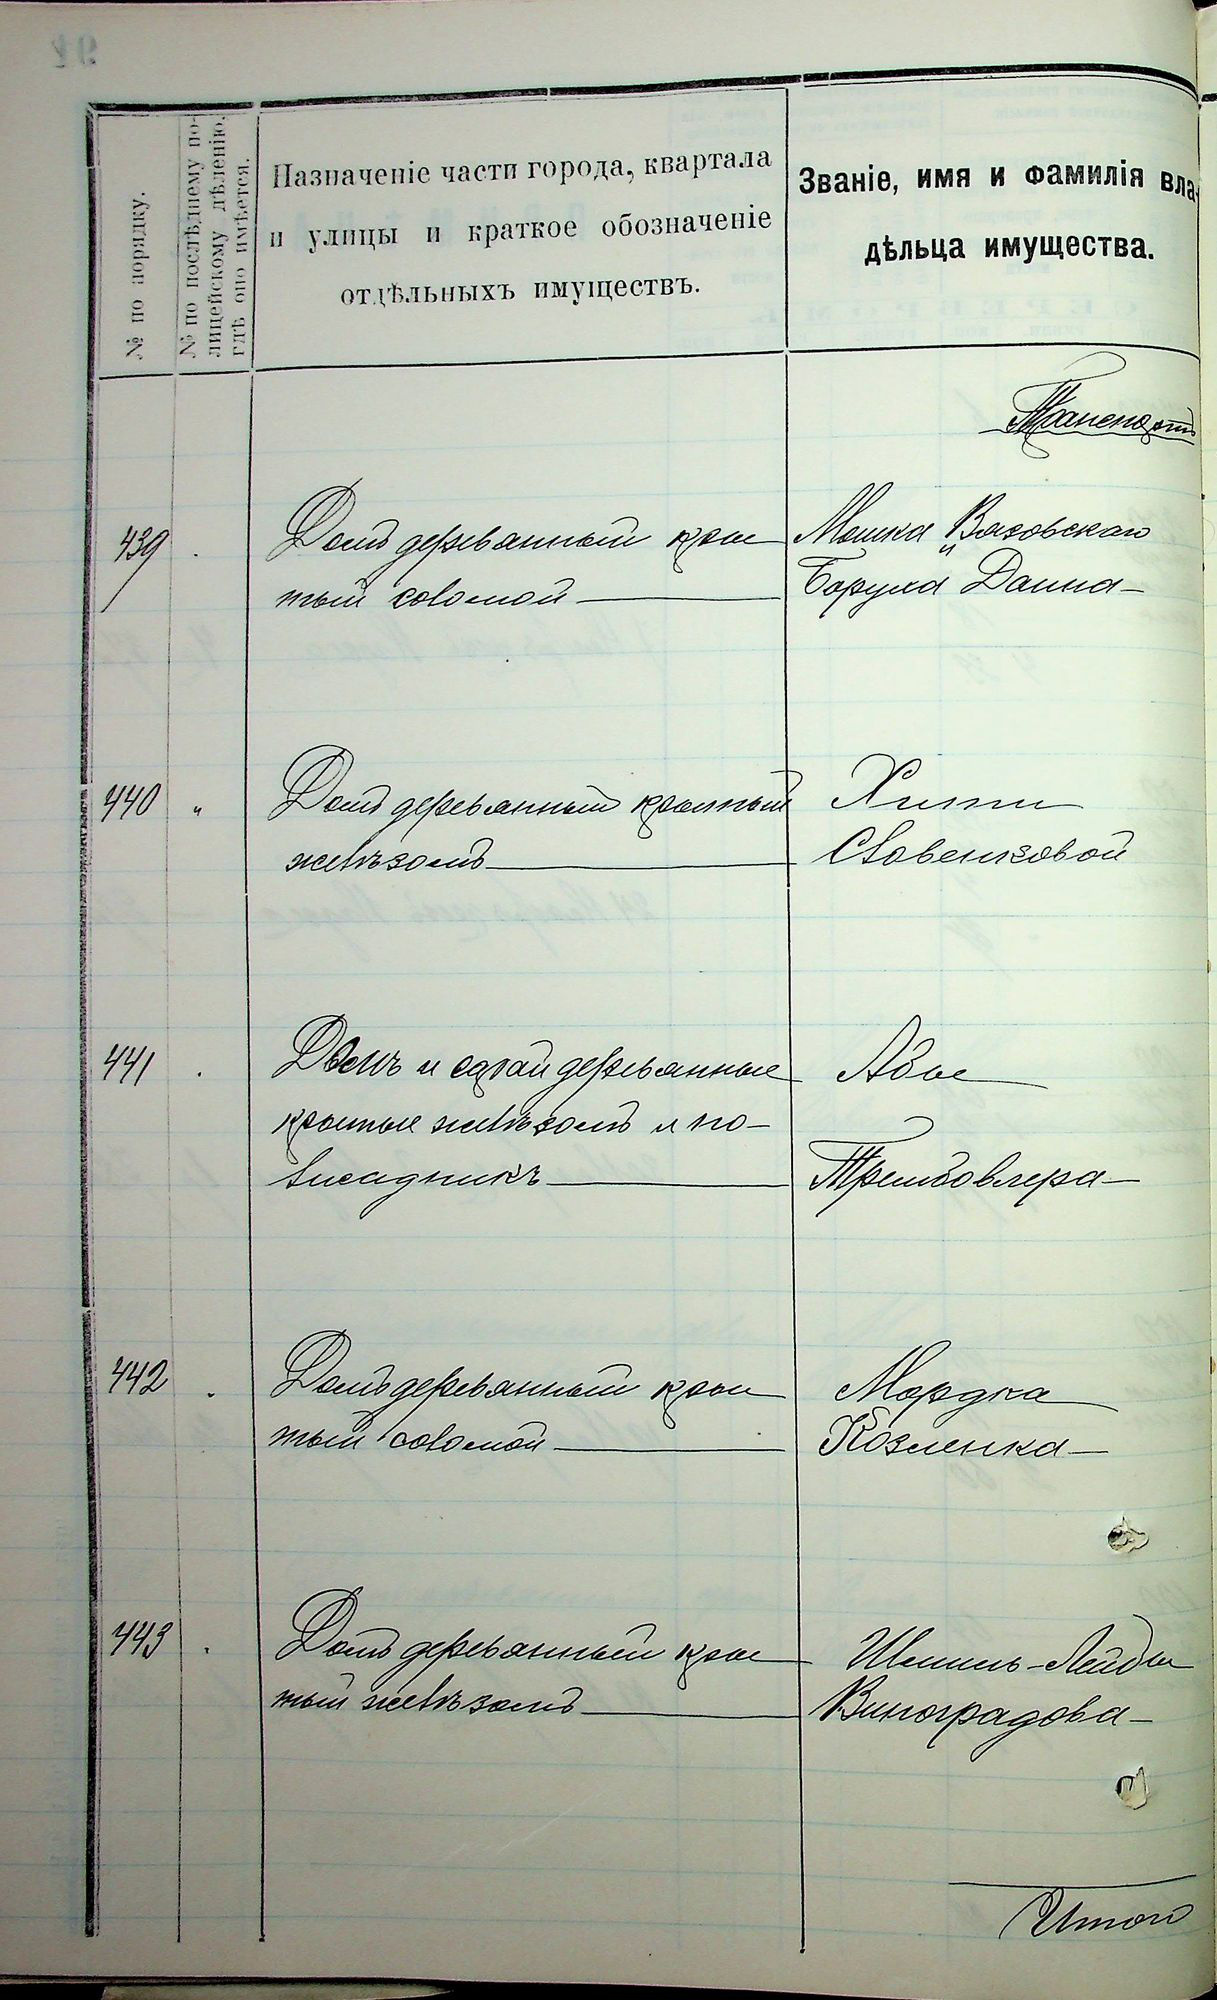 № по порядку.
№ по послѣднему по-
лицейскому дѣленію,
гдѣ оно имѣется.
Назначеніе части города, квартала
и улицы и краткое обозначеніе
отдѣльныхъ имуществъ.
Званіе, имя и фамилія вла-
дѣльца имущества.
Транспортъ
439
Домъ деревянный кры
тый соломой
Мошка Вязовскаго
и
Боруха Данна
440 "
Домъ деревянный крытый
желѣзомъ
Хити
Словенковой
441
Домъ и сарай деревянные
крытые желѣзомъ и по-
лисадникъ
Абы
Трембовлера
442
Домъ деревянный кры
тый соломой
Мордка
Козленка
443
Домъ деревянный кры
тый желѣзомъ
Шмиль-Лейбы
Виноградова
Итого